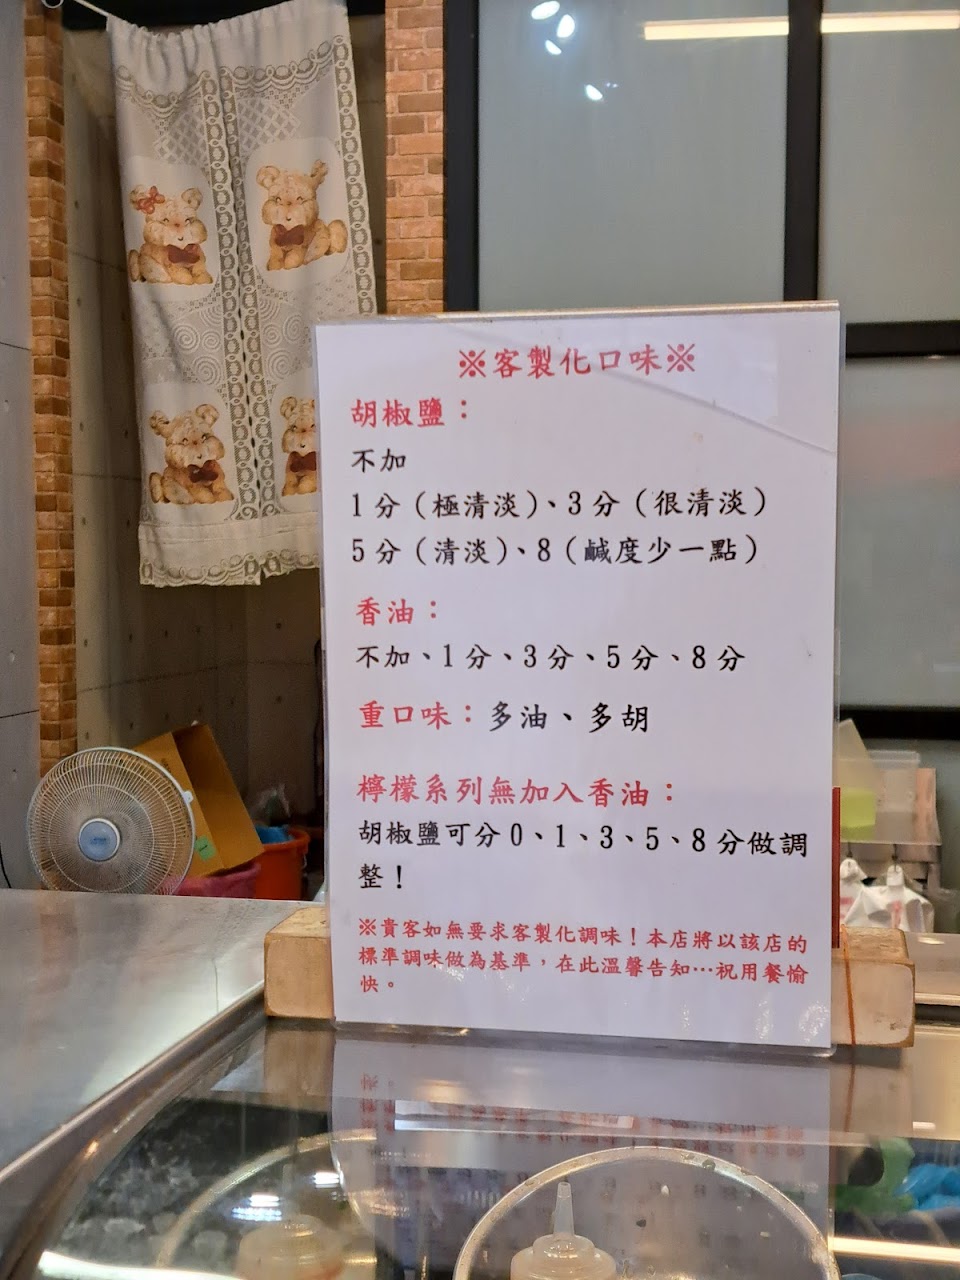 ※客製化口味※
胡椒鹽：
不加
1分（極清淡）、3分（很清淡）
5分（清淡）、8（鹹度少一點）
香油：
不加、1分、3分、5分、8分
重口味：多油、多胡
檸檬系列無加入香油：
胡椒鹽可分0、1、3、5、8分做調
整！
※貴客如無要求客製化調味！本店將以該店的
標準調味做為基準，在此溫馨告知…祝用餐愉
快。